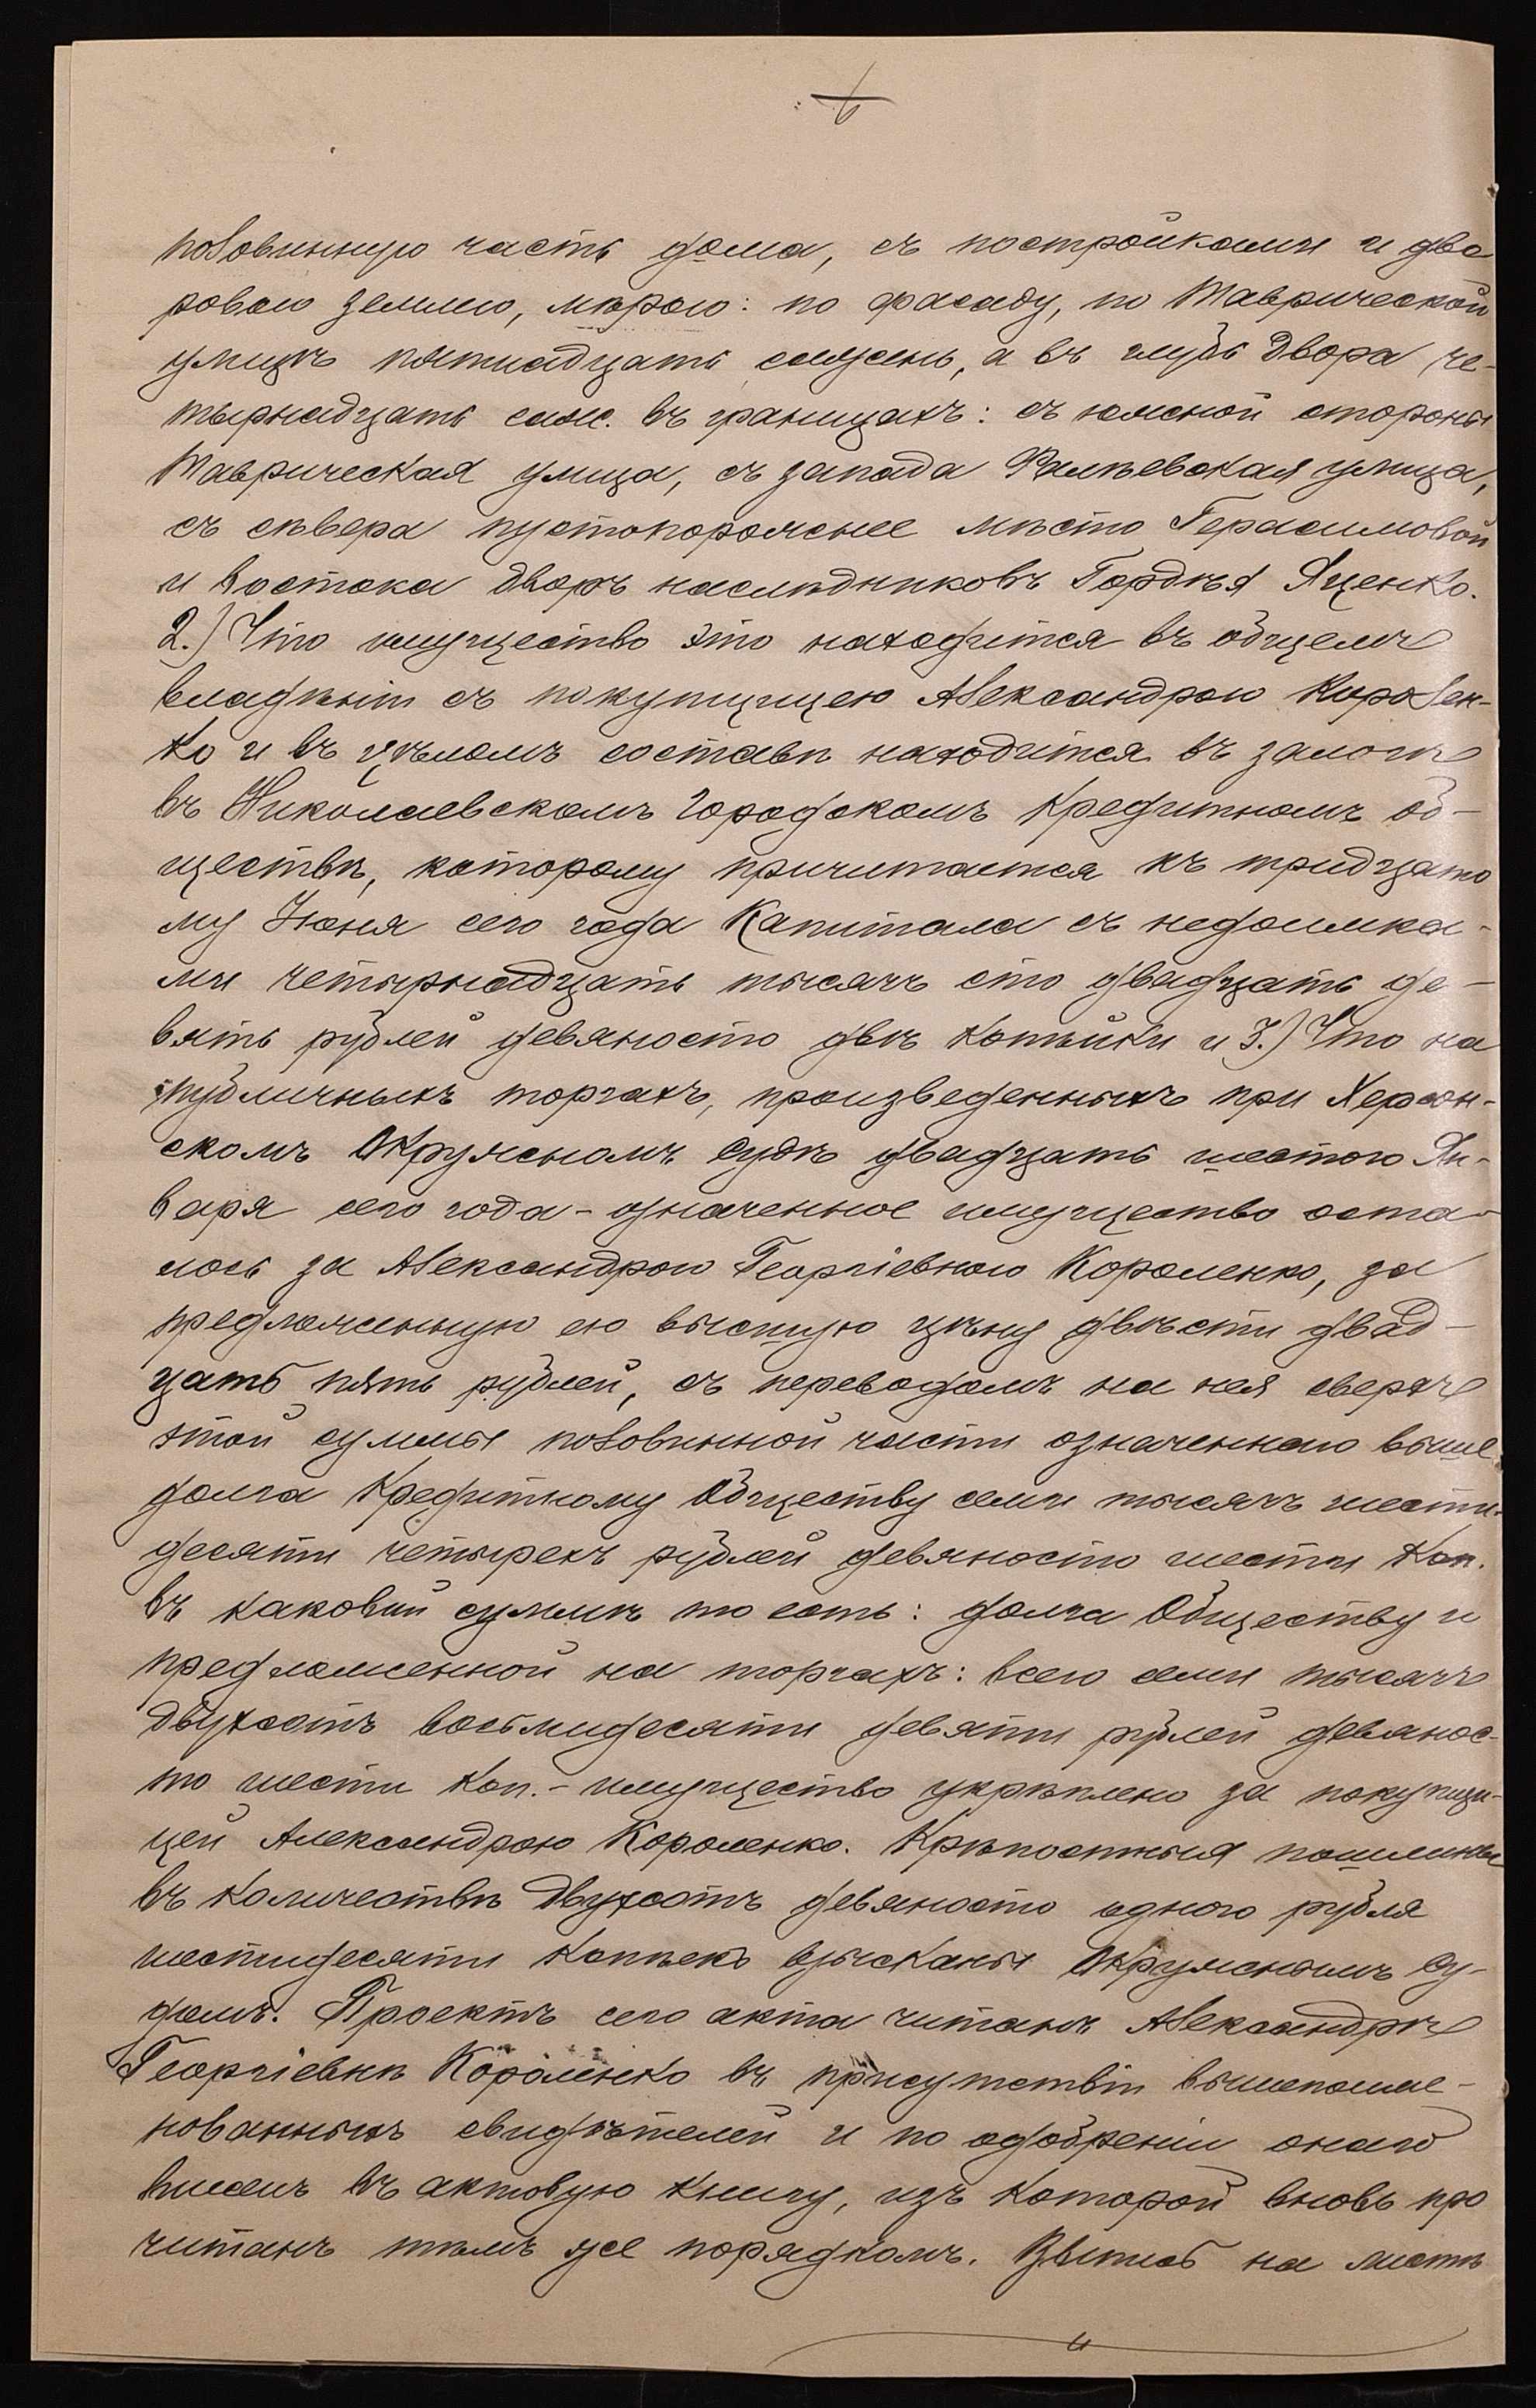 половинную часть дома, съ постройками и дво
ровою землею, мѣрою: по фасаду, по Таврической
улицѣ пятнадцать сажень, а въ глубь двора че-
тырнадцать саж. въ границахъ: съ южной стороны
Таврическая улица, съ запада Фалѣевская улица,
съ сѣвера пустопорожнее мѣсто Герасимовой
и востока дворъ наслѣдниковъ Гордѣя Яценко.
2.) Что имущество это находится въ общемъ
владѣніи съ покупщицею Александрою Королен-
ко и въ цѣломъ составѣ находится въ залогѣ
въ Николаевскомъ Городскомъ Кредитномъ об-
ществѣ, которому причитается къ тридцато
му Іюня сего года Капитала съ недоимка-
ми четырнадцать тысячъ сто двадцать де-
вять рублей девяносто двѣ копѣйки и 3.) Что на
публичныхъ торгахъ, произведенныхъ при Херсон-
скомъ Окружномъ Судѣ двадцать шестого Ян-
варя сего года - означенное имущество оста-
лось за Александрою Георгіевною Короленко, за
предложенную ею высшую цѣну двѣсти двад-
цать пять рублей, съ переводомъ на нея сверхъ
этой суммы половинной части означеннаго выше
долга Кредитному Обществу семи тысячъ шести-
десяти четырехъ рублей девяносто шести Коп.
въ каковой суммѣ то есть: долга Обществу и
предложенной на торгахъ: всего семи тысячъ
двухсотъ восьмидесяти девяти рублей девянос-
то шести Коп. - имущество укрѣплено за покупщи-
цей Александрою Короленко. Крѣпостныя пошлины
въ количествѣ двухсотъ девяносто одного рубля
шестидесяти копѣекъ взысканы Окружнымъ Су-
домъ. Проектъ сего акта читанъ Александрѣ
Георгіевнѣ Короленко въ присутствіи вышепоиме-
нованныхъ свидѣтелей и по одобреніи онаго
внесенъ въ актовую книгу, изъ которой вновь про
читанъ тѣмъ же порядкомъ. Выпись на листѣ